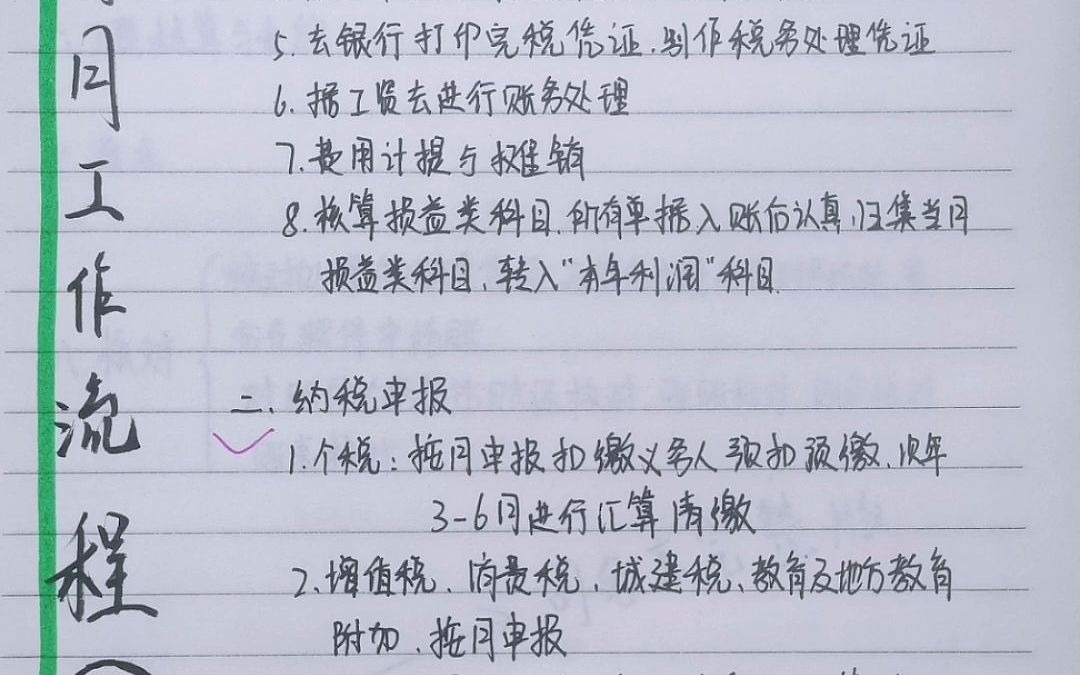 月工作流程
5.去银行打印完税凭证.别作税务处理凭证
6.据工资表进行账务处理
7.费用计提与摊销
8.核算损益类科目.所有单据入账后认真归集当月
损益类科目,转入“本年利润”科目
二、纳税申报
1.个税:按月申报扣缴义务人预扣预缴.次年
3-6月进行汇算清缴
2.增值税、消费税、城建税、教育及地方教育
附加.按月申报